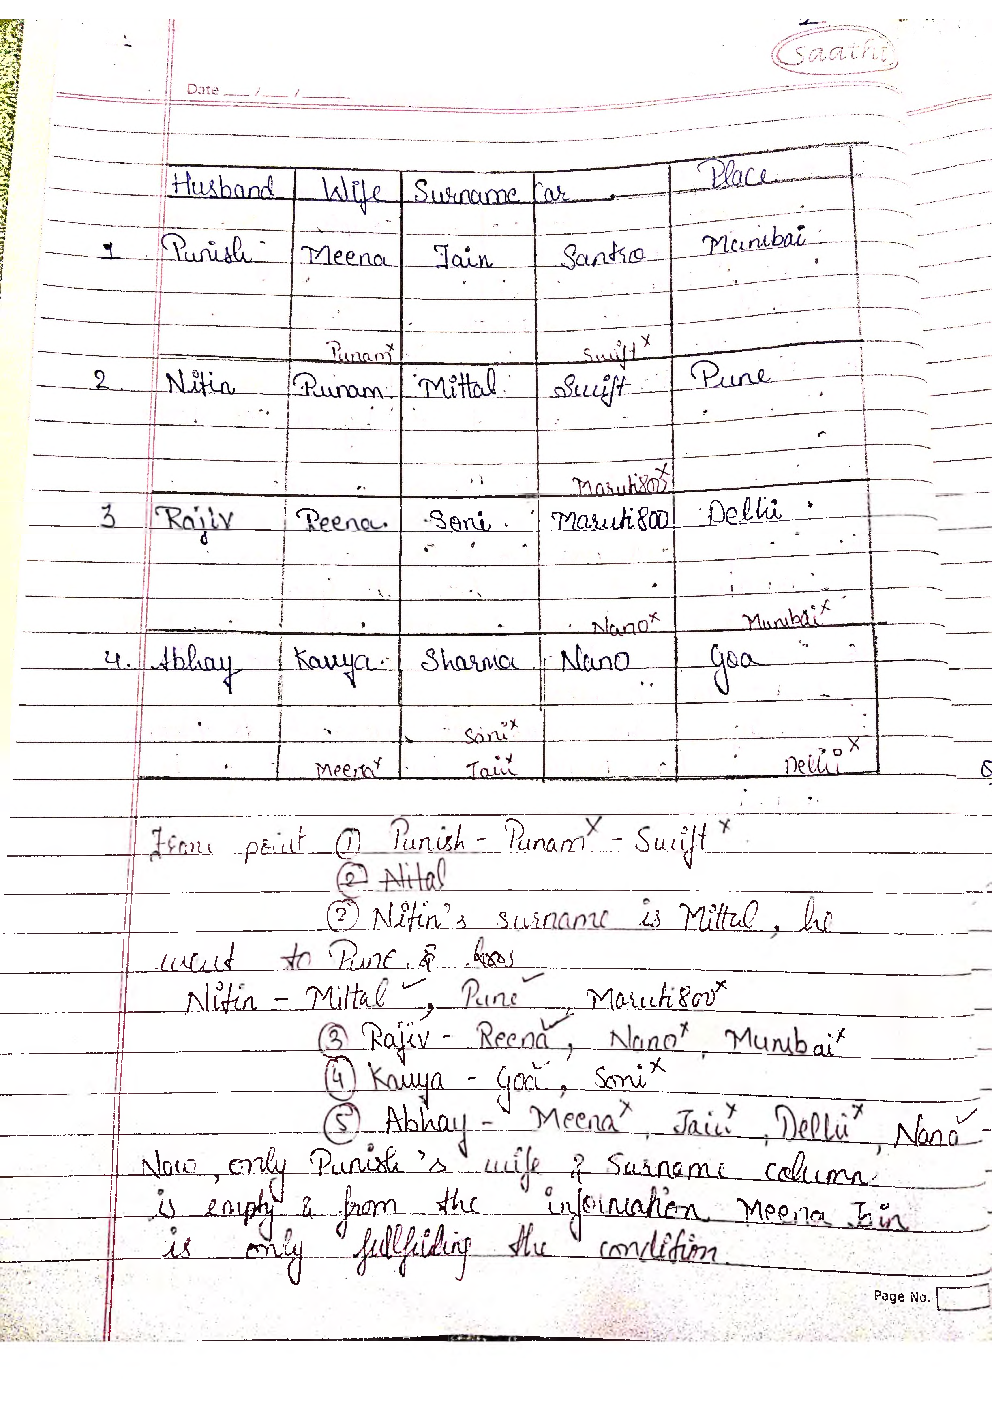 Saathi
Date ___ / ___ / _____
Husband Wife Surname Car Place
1 Punish Meena Jain Santro Mumbai
Punam x Swift x
2 Nitin Punam Mittal Swift Pune
Maruti 800 x
3 Rajiv Reena Soni Maruti 800 Delhi
Nano x Mumbai x
4. Abhay Kavya Sharma Nano Goa
Soni x
Meena x Jain x Delhi x
From point ① Punish - Punam x - Swift x
② Nital
② Nitin's surname is Mittal, he
went to Pune &
Nitin - Mittal ✓, Pune ✓, Maruti 800 x
③ Rajiv - Reena ✓, Nano x, Mumbai x
④ Kavya - Goa ✓, Soni x
⑤ Abhay - Meena x, Jain x, Delhi x, Nano ✓
Now, only Punish's wife & Surname column
is empty & from the information Meena Jain
is only fullfiding the condition.
Page No.